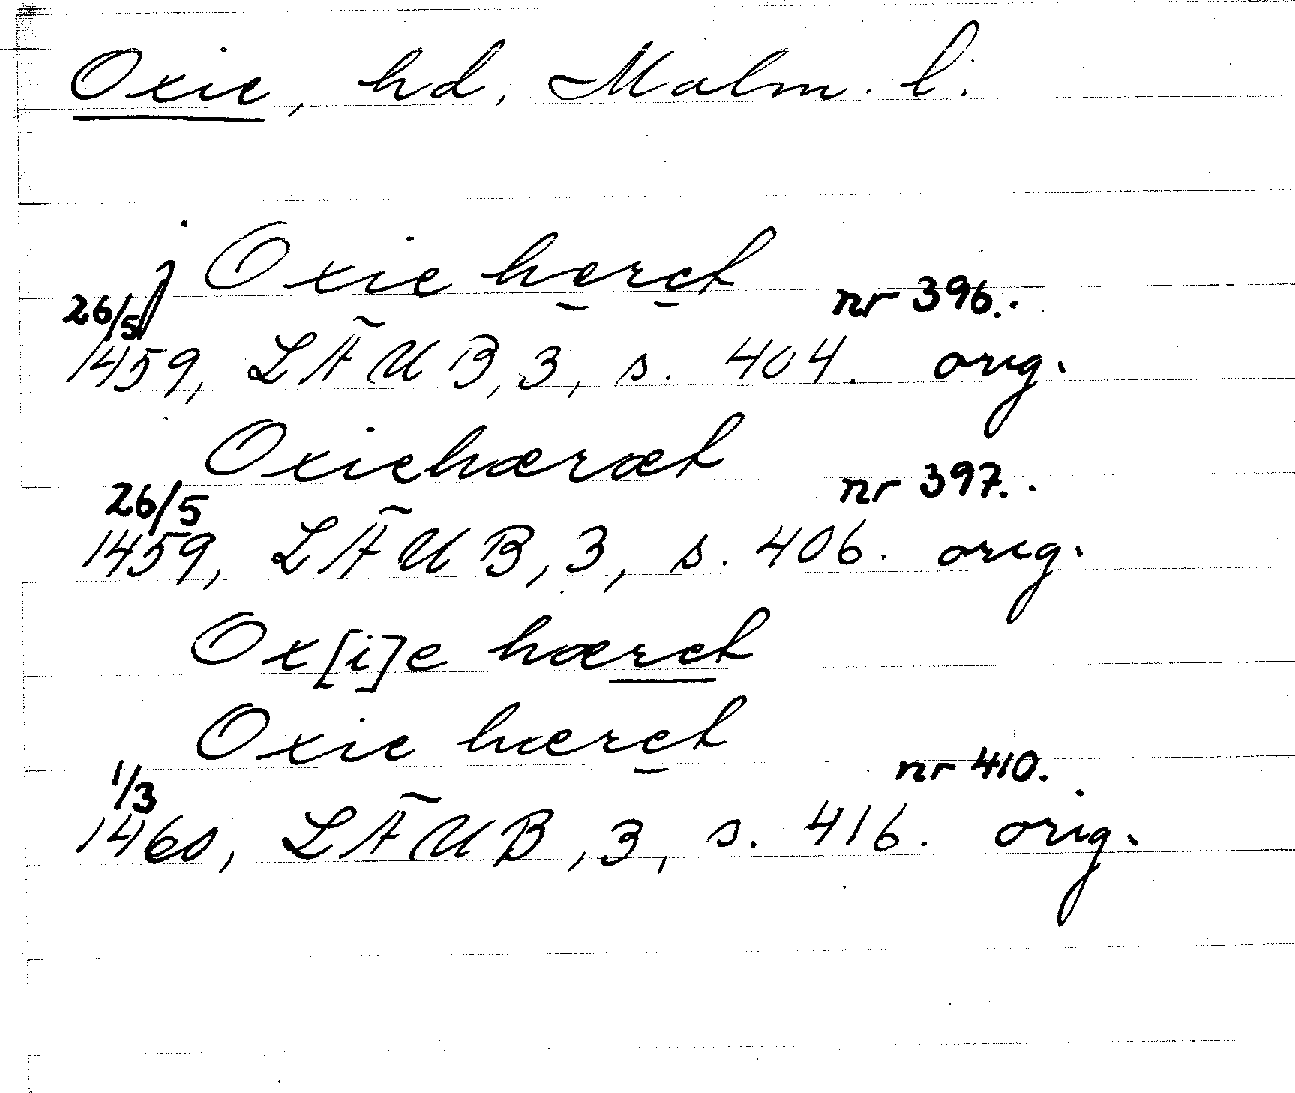 Oxie, hd, Malm. l.
j Oxie heret nr 396.
26/5 1459, LÄUB, 3, s. 404. orig.
Oxiehæræt nr 397.
26/5 1459, LÄUB, 3, s. 406. orig.
Ox[i]e hæret
Oxie hæret nr 410.
1/3 1460, LÄUB, 3, s. 416. orig.